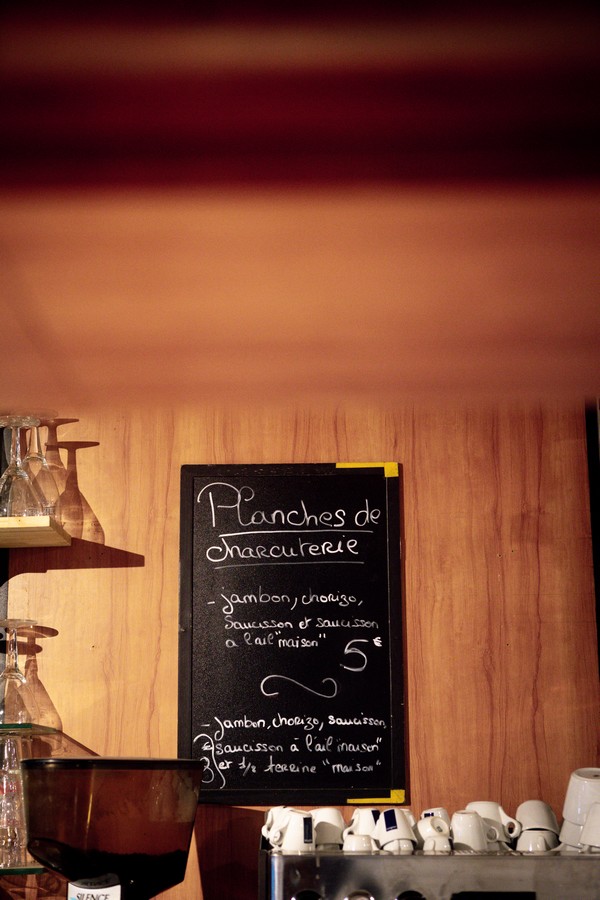 Planches de
charcuterie
- jambon, chorizo,
saucisson et saucisson
a l'ail "maison"
5€
- jambon, chorizo, saucisson,
saucisson à l'ail "maison"
et 1/2 terrine "maison"
SILENCE